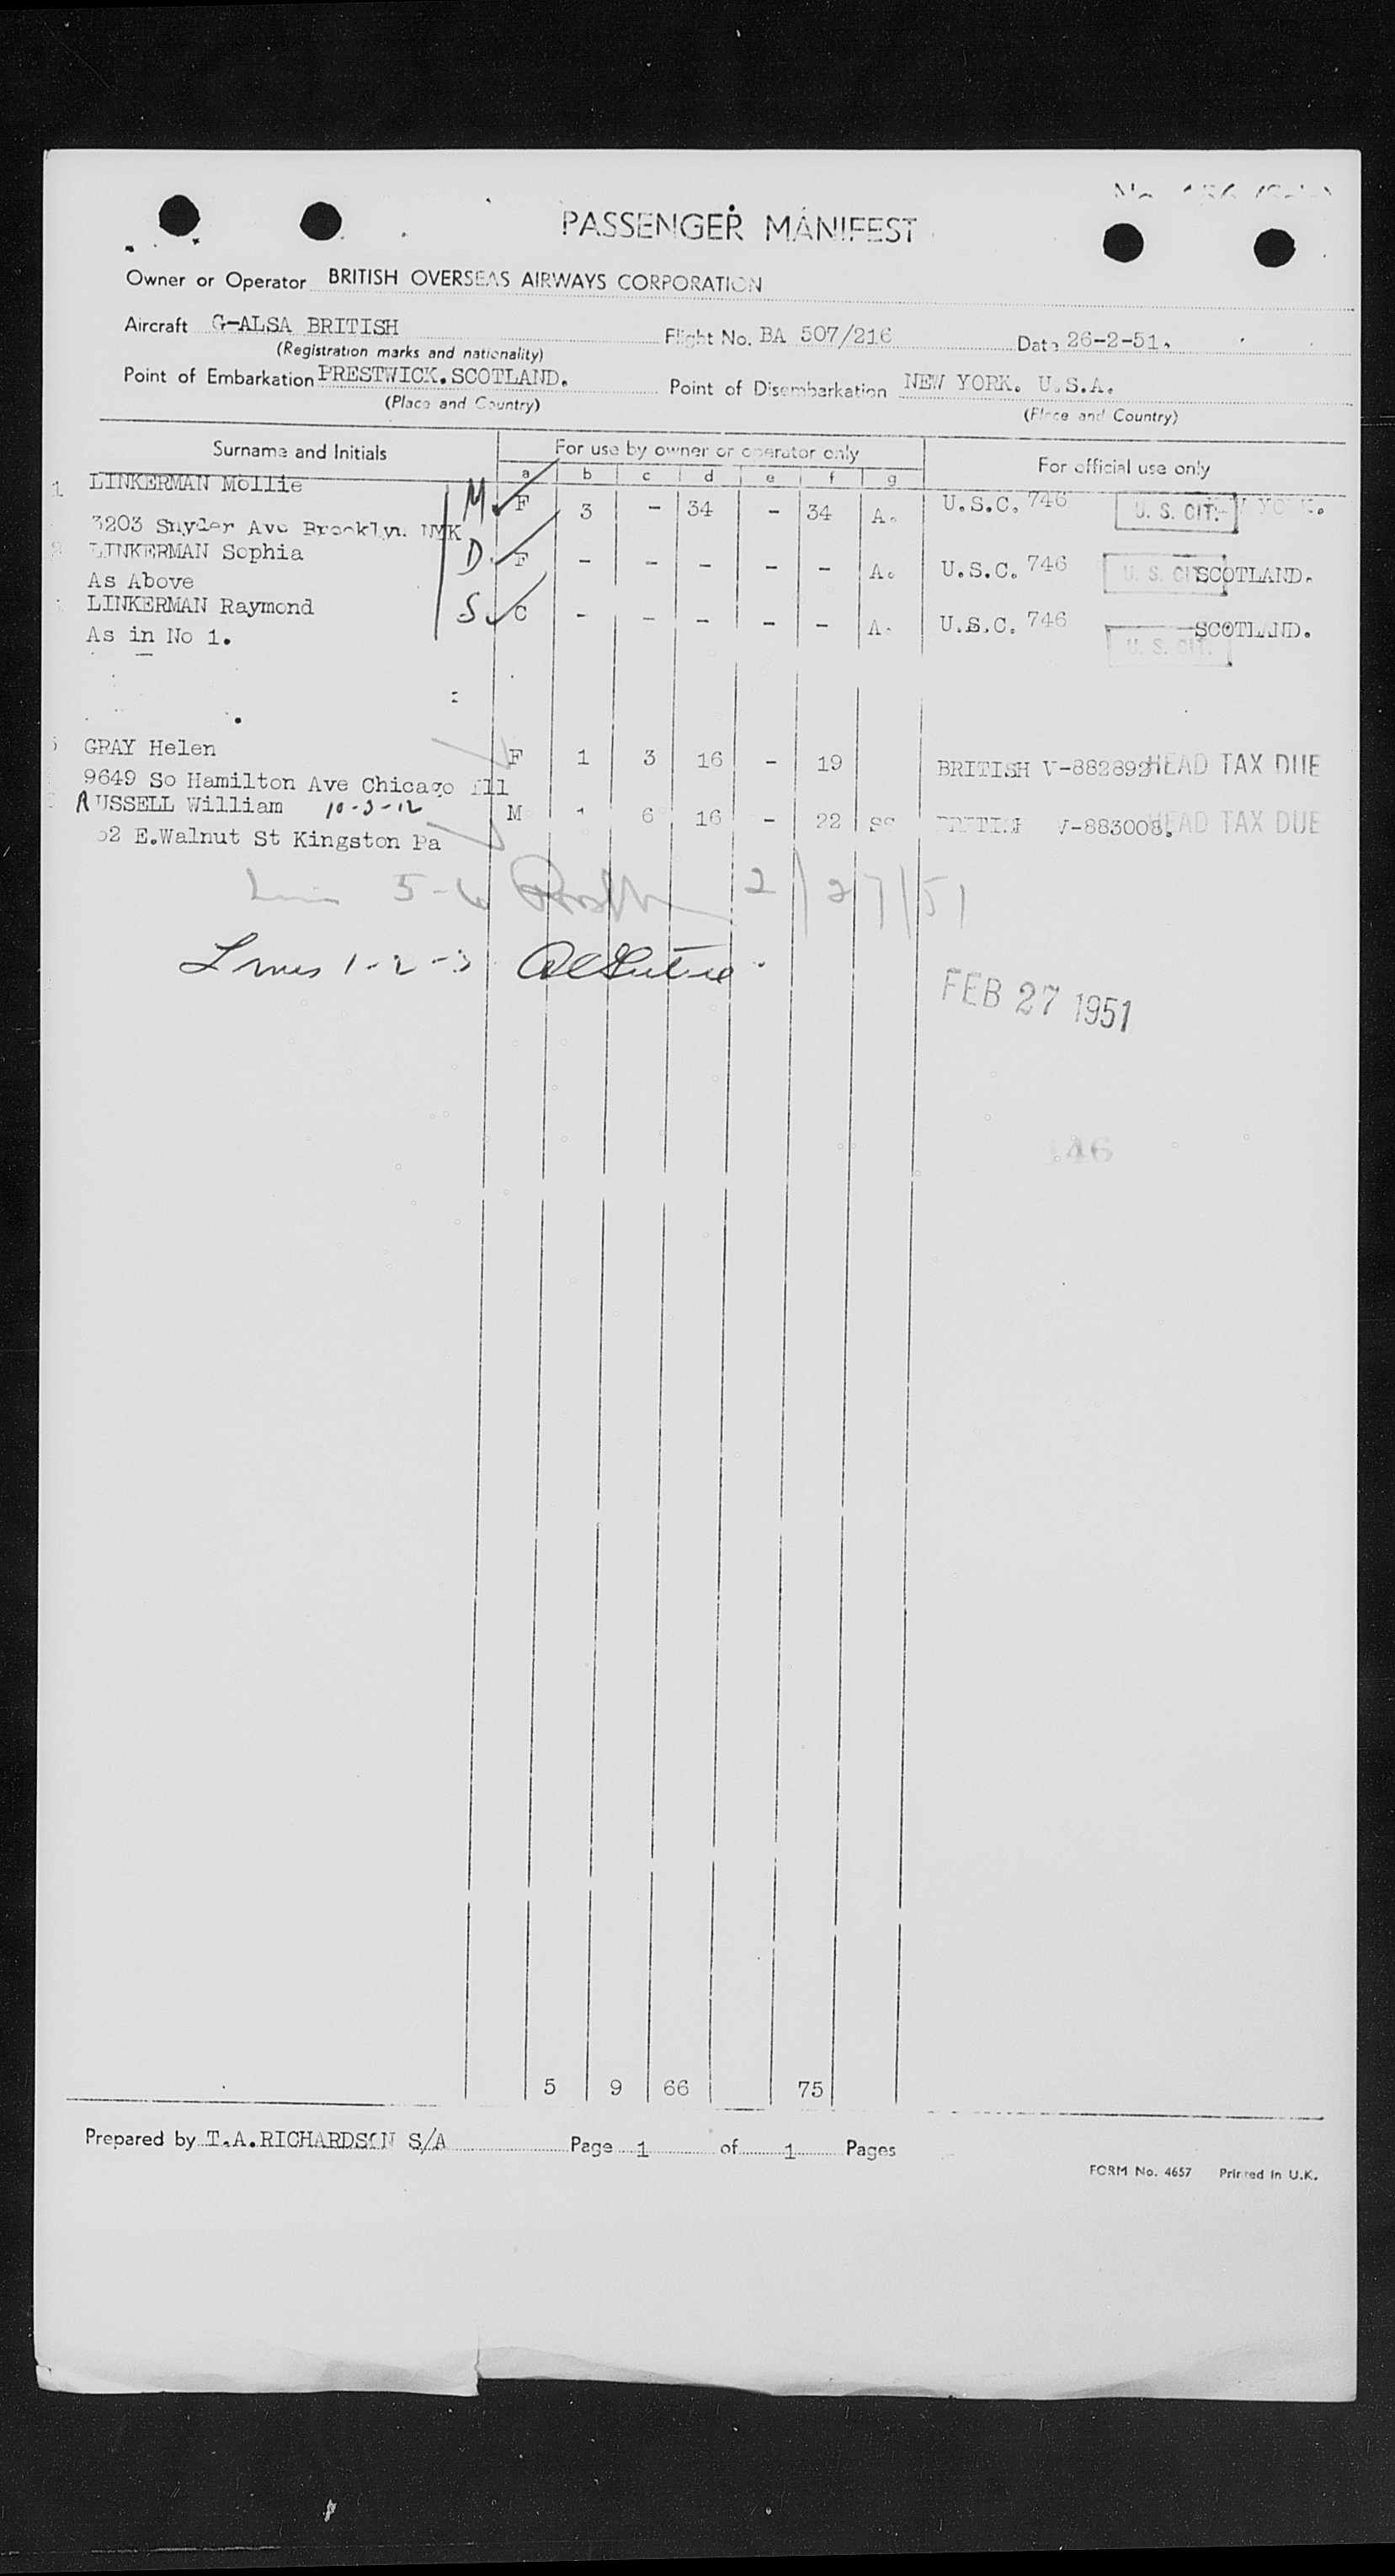 PASSENGER MANIFEST
Owner or Operator BRITISH OVERSEAS AIRWAYS CORPORATION
Aircraft G-ALSA BRITISH Flight No. BA 507/216 Date 26-2-51.
(Registration marks and nationality)
Point of Embarkation PRESTWICK. SCOTLAND. Point of Disembarkation NEW YORK. U.S.A.
(Place and Country) (Place and Country)
Surname and Initials For use by owner or operator only For official use only
a b c d e f g
1 LINKERMAN Mollie M F 3 - 34 - 34 A. U.S.C. 746 U. S. CIT. YORK.
3203 Snyder Ave Brooklyn. NYK
2 LINKERMAN Sophia D. F - - - - - A. U.S.C. 746 U. S. CIT. SCOTLAND.
As Above
LINKERMAN Raymond S C - - - - - A. U.S.C. 746 SCOTLAND.
As in No 1. U. S. CIT.
GRAY Helen F 1 3 16 - 19 BRITISH V-882892 HEAD TAX DUE
9649 So Hamilton Ave Chicago Ill
RUSSELL William 10-3-12 M 1 6 16 - 22 BRITISH V-883008. HEAD TAX DUE
52 E.Walnut St Kingston Pa
5-6 2/27/51
Lines 1-2-3
FEB 27 1951
46
5 9 66 75
Prepared by T.A.RICHARDSON S/A Page 1 of 1 Pages
FORM No. 4657 Printed in U.K.